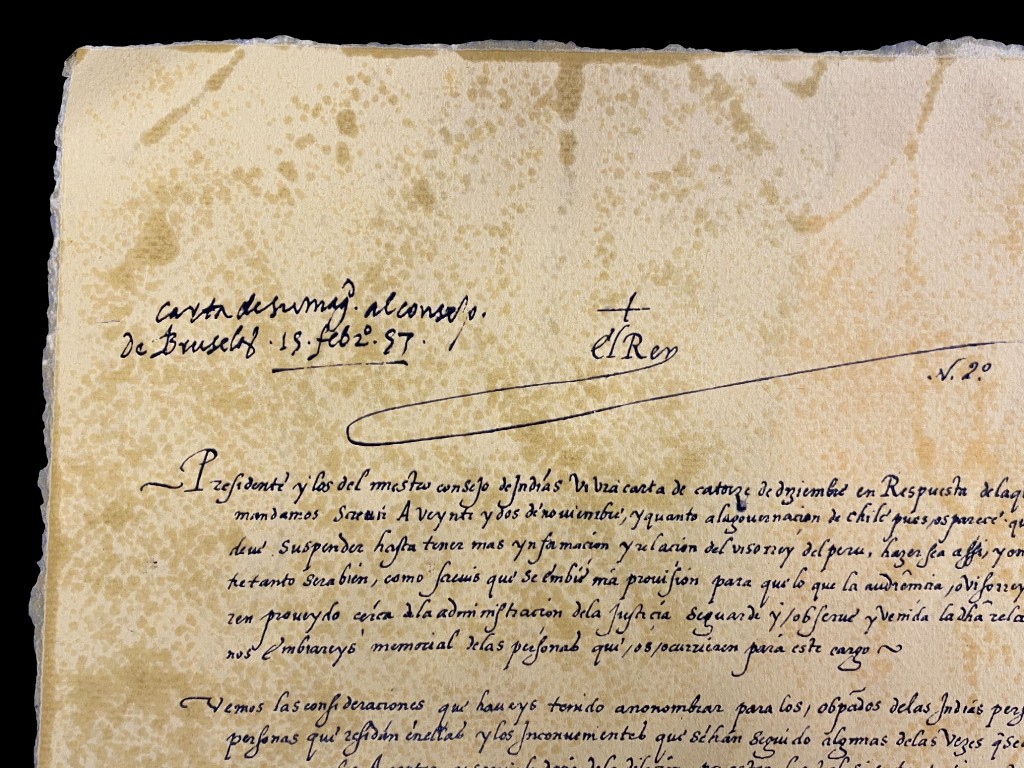 carta de su magd. al consejo.
de Bruselas .15. febo. 57.
el Rey
N. 2º
Presidente y los del nuestro consejo de Indias Vi vra carta de catorze de diziembre en Respuesta de la q
mandamos screuir A veynte y dos de nouiembre, y quanto a la gouernacion de Chile pues, os parece q
deue suspender hasta tener mas ynformacion y relacion del visorrey del peru, hazer sea assi, y
tretanto sera bien, como screuis que se embie mi prouision para que lo que la audiencia, o visorrey
ren proueydo cerca a la administracion de la Justicia se guarde y, obserue y venida la dha rela
nos embiareys memorial de las personas que, os, ocurrieren para este cargo
Vemos las consideraciones que haueys tenido a nonombrar para los, obpados de las Indias pers
personas que residan en ellas y los Inconuenientes que se han seguido algunas de las vezes q se